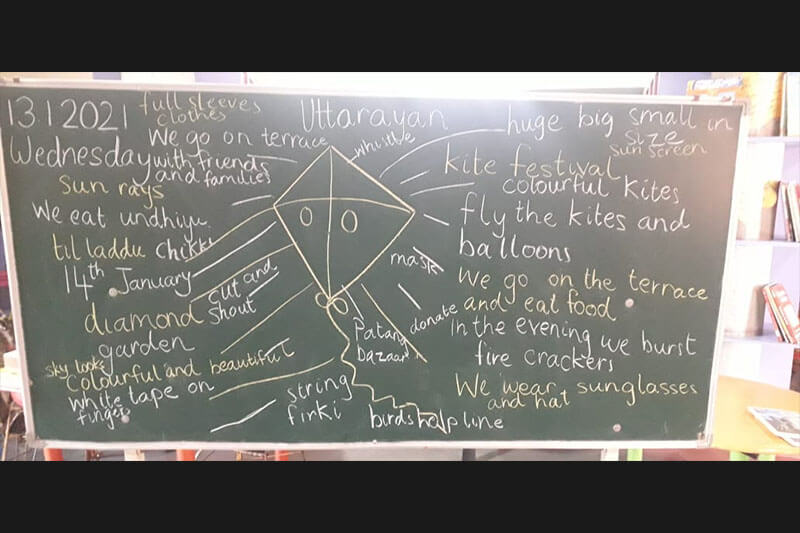 13 1 2021
Wednesday
full sleeves
clothes
We go on terrace
with friends
and families
Sun rays
We eat undhiyu
til laddu chikki
14th January
cut and
shout
diamond
garden
sky looks
colourful and beautiful
White tape on
finger
string
firki
Uttarayan
whistle
huge big small in
size
sun screen
kite festival
colourful kites
fly the kites and
balloons
mask
We go on the terrace
and eat food
donate
In the evening we burst
fire crackers
Patang
bazaar
We wear sunglasses
and hat
birds help line